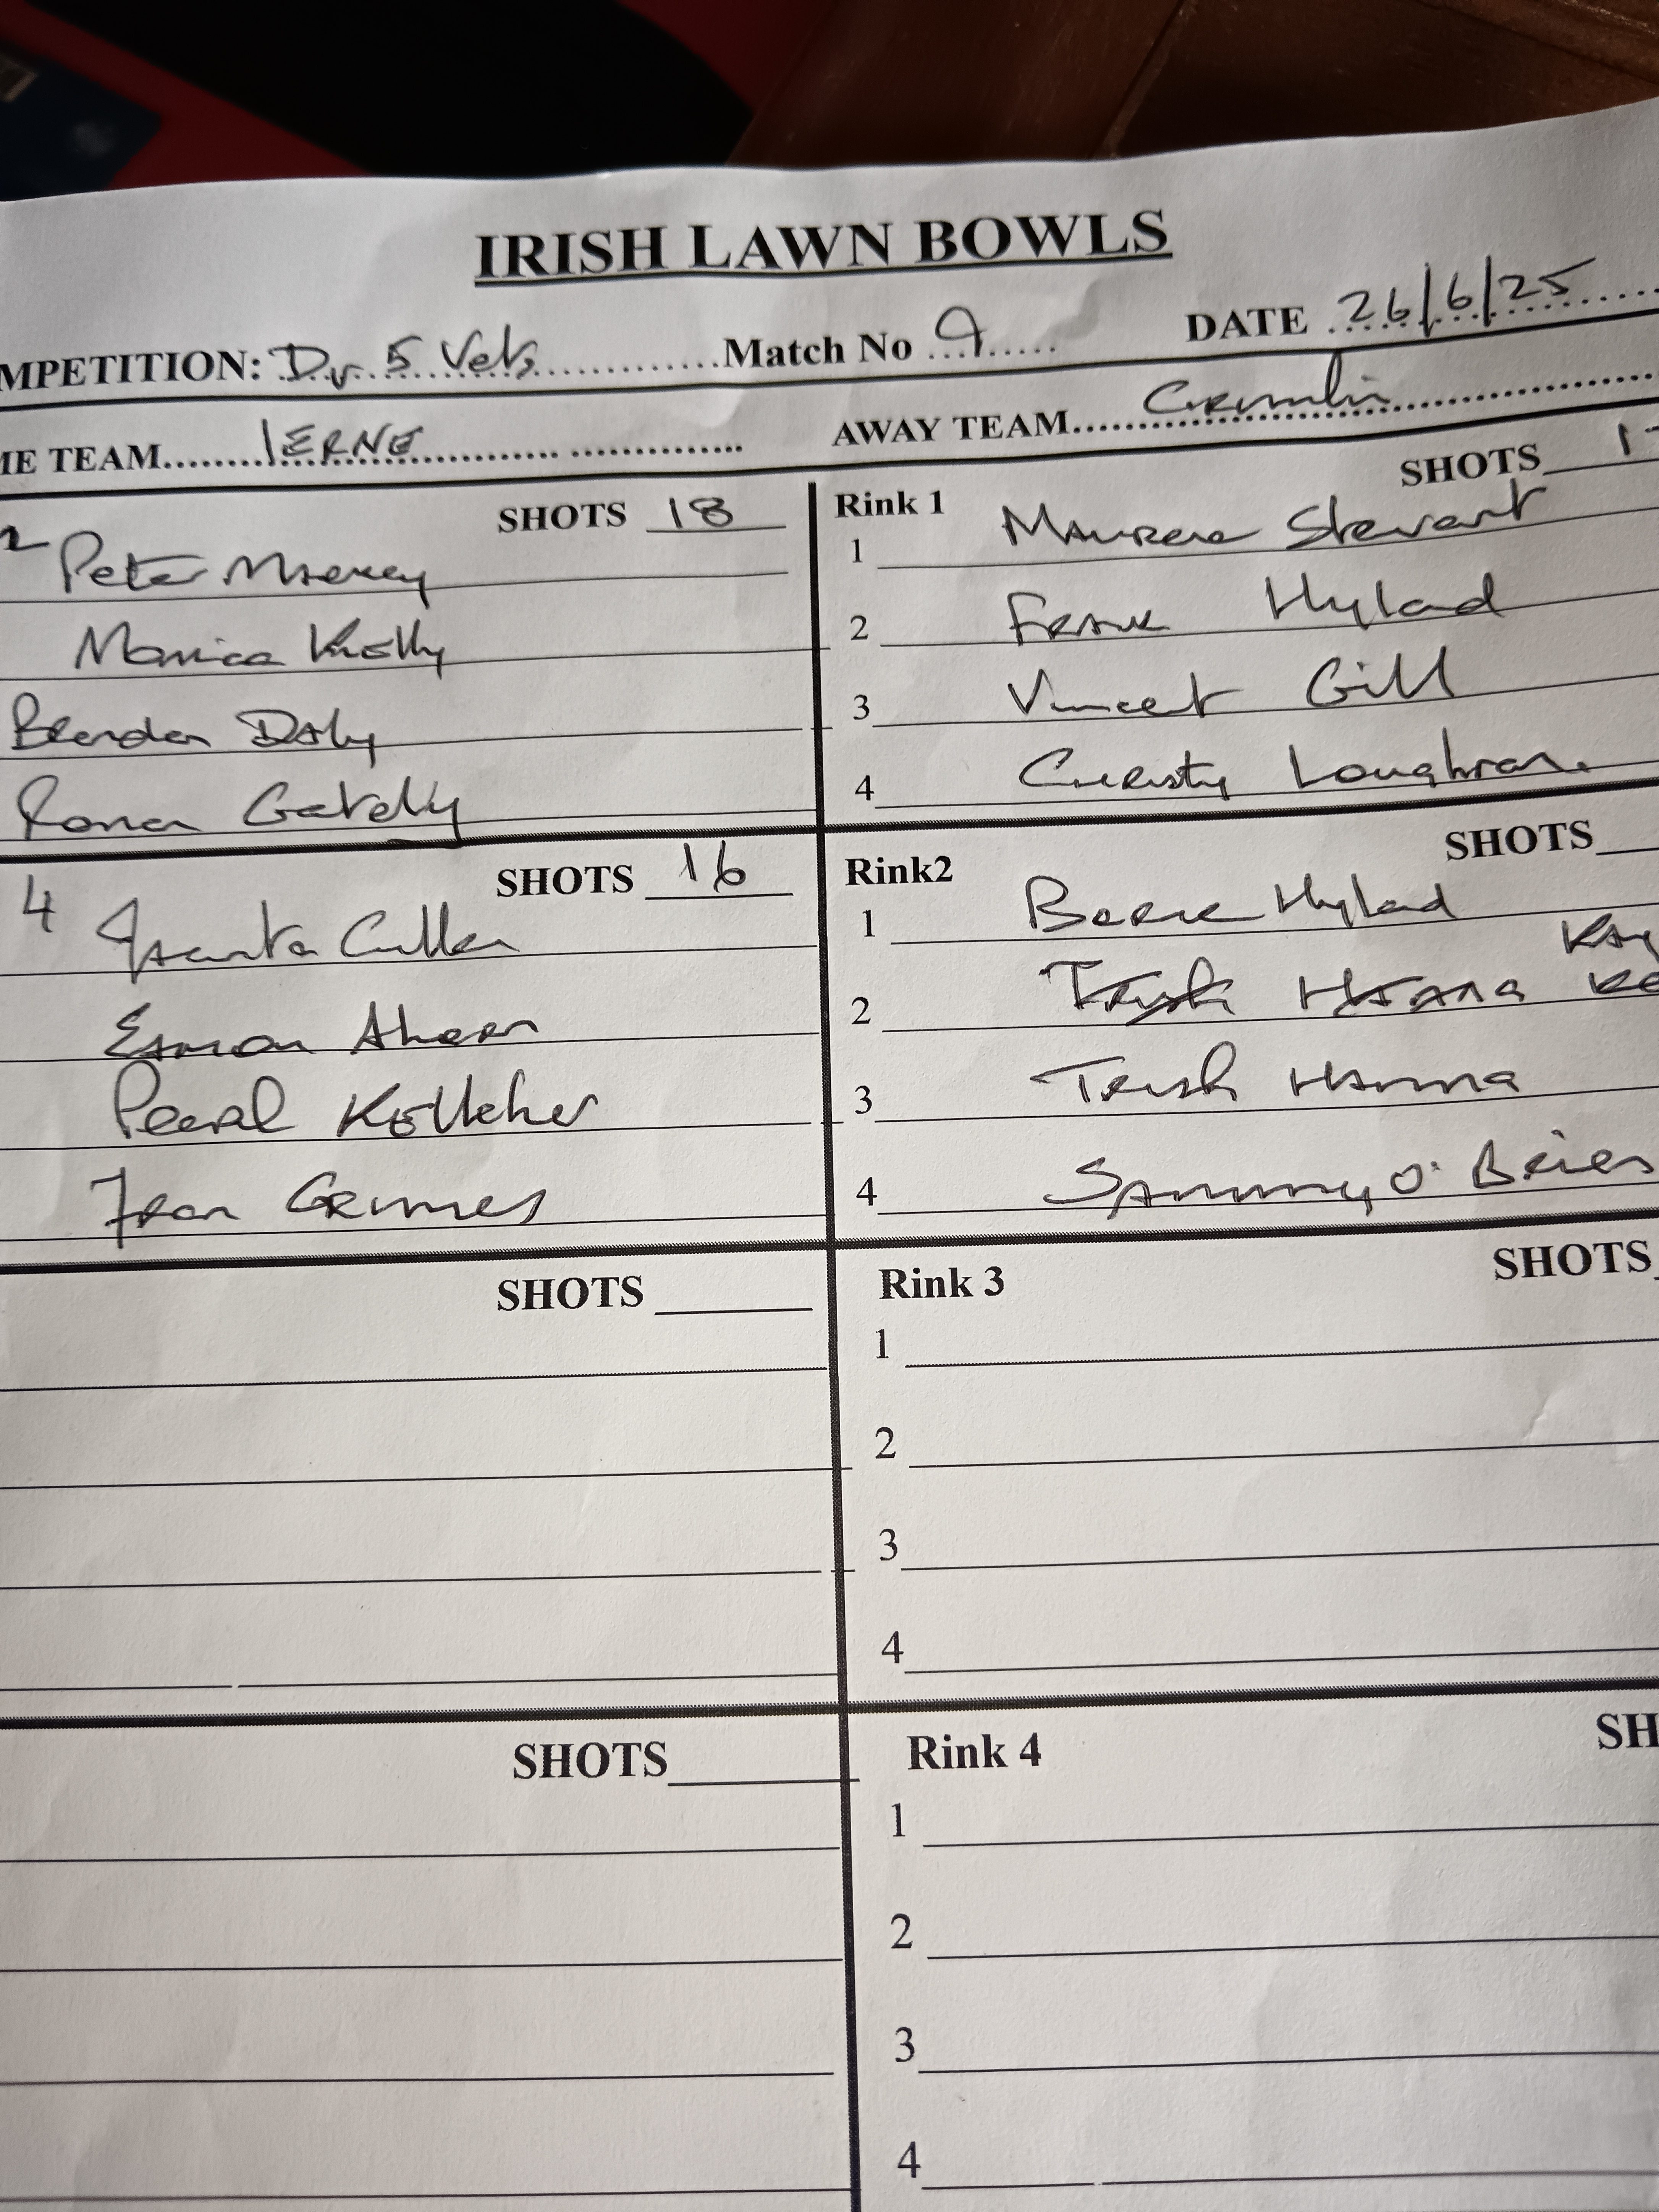 IRISH LAWN BOWLS
MPETITION: Div 5 Vets Match No 9 DATE 26/6/25
ME TEAM IERNE AWAY TEAM Crumlin
SHOTS 18
2 Peter
Monica Kelly
Brendan Daly
Ronan Gately
Rink 1 SHOTS
1 Maureen Stewart
2 Frank Hyland
3 Vincent Gill
4 Christy Loughran.
SHOTS 16
4 Jacinta Cullen
Eamon Ahern
Pearl Kelleher
Fran Grimes
Rink2 SHOTS
1 Hyland
Kay
2 Trish Hanna Ke
3 Trish Hanna
4 Sammy O'Brien
SHOTS
Rink 3 SHOTS
1
2
3
4
SHOTS
Rink 4 SH
1
2
3
4